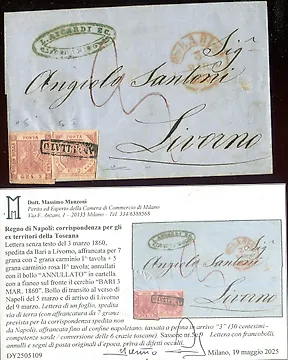 L. RICARDI EC.
BARI
Sig.
Angiolo Santoni
Livorno
ANNULLATO
M
Dott. Massimo Manzoni
Perito ed Esperto della Camera di Commercio di Milano
Via F. Anzani, 1 - 20135 Milano - Tel. 334 6368568
Regno di Napoli: corrispondenza per gli
ex territori della Toscana
Lettera senza testo del 3 marzo 1860,
spedita da Bari a Livorno, affrancata per 7
grana con 2 grana carminio Iª tavola + 5
grana carminio rosa IIª tavola; annullati
con il bollo "ANNULLATO" in cartella
con a fianco sul fronte il cerchio "BARI 3
MAR. 1860". Bollo di transito al verso di
Napoli del 5 marzo e di arrivo di Livorno
del 9 marzo. Lettera in buon stato, spedita
via di terra con affrancatura di 7 grana
prevista per la corrispondenza spedita non
da Napoli, affrancata fino al confine napoletano, tassata a penna in arrivo "3" (30 centesimi-
competenze sarde / conversione delle 6 crazie toscane) Sassone n. Lettera con francobolli,
annulli e segni di posta originali d'epoca, priva di difetti occulti.
DY2505109
Milano, 19 maggio 2025